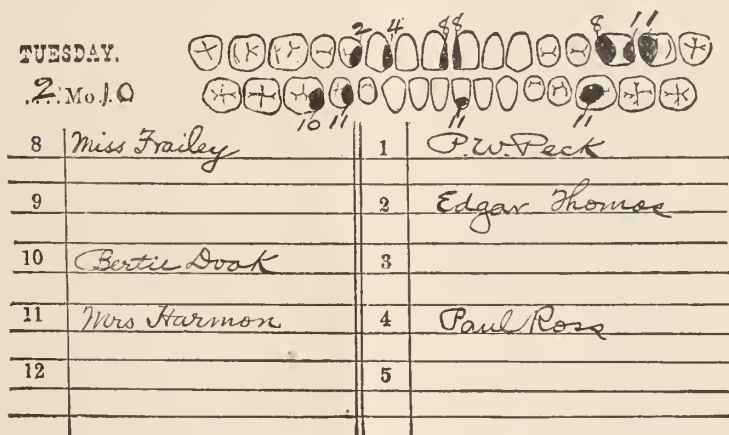 2 4 88 8 11
TUESDAY.
2 Mo. 10
10 11 11 11
8 Miss Frailey 1 P. W. Peck
9 2 Edgar Thomas
10 Bertie Doak 3
11 Mrs Harmon 4 Paul Ross
12 5